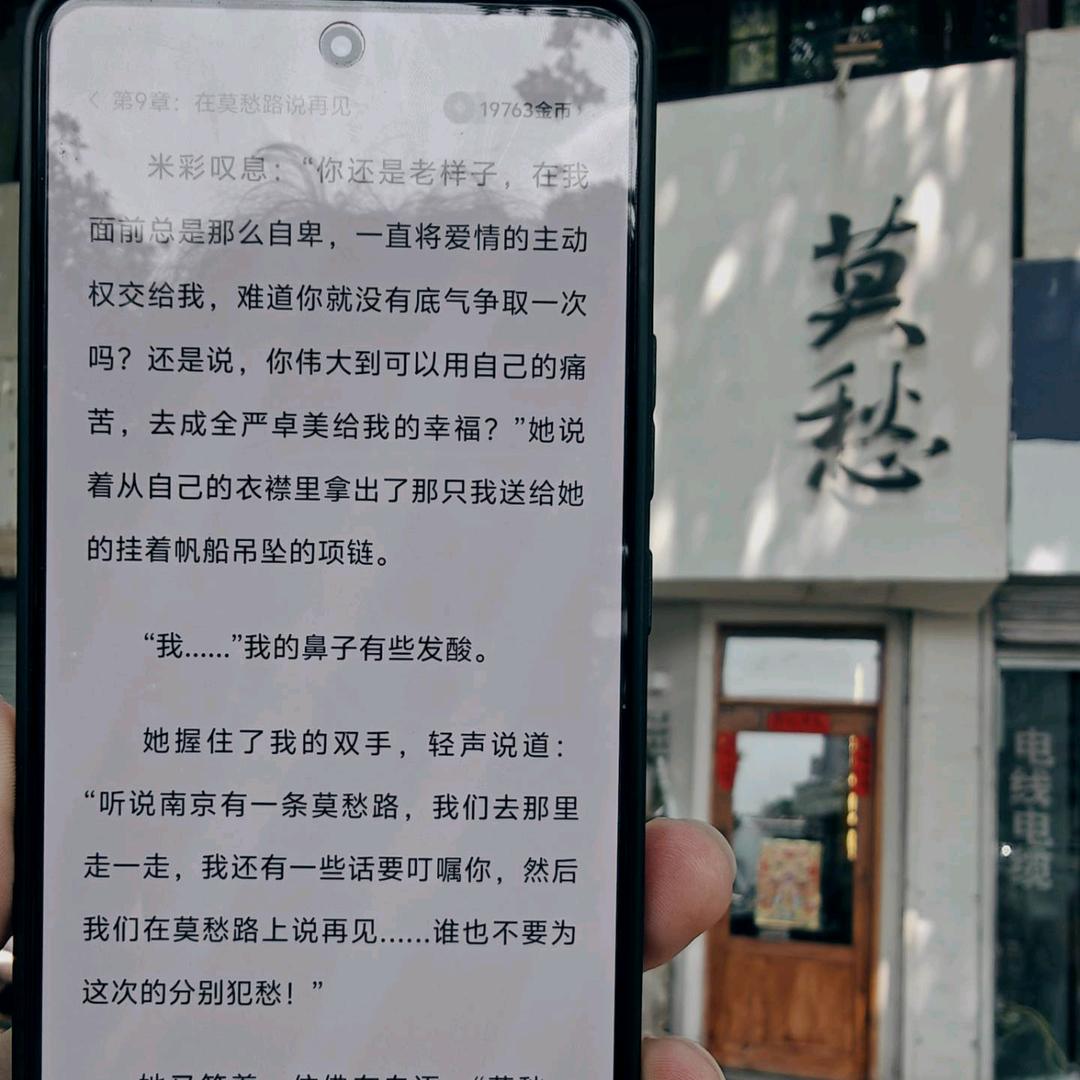 第9章：在莫愁路说再见
19763金币
米彩叹息：“你还是老样子，在我
面前总是那么自卑，一直将爱情的主动
权交给我，难道你就没有底气争取一次
吗？还是说，你伟大到可以用自己的痛
苦，去成全严卓美给我的幸福？”她说
着从自己的衣襟里拿出了那只我送给她
的挂着帆船吊坠的项链。
“我……”我的鼻子有些发酸。
她握住了我的双手，轻声说道：
“听说南京有一条莫愁路，我们去那里
走一走，我还有一些话要叮嘱你，然后
我们在莫愁路上说再见……谁也不要为
这次的分别犯愁！”
莫愁
电线电缆